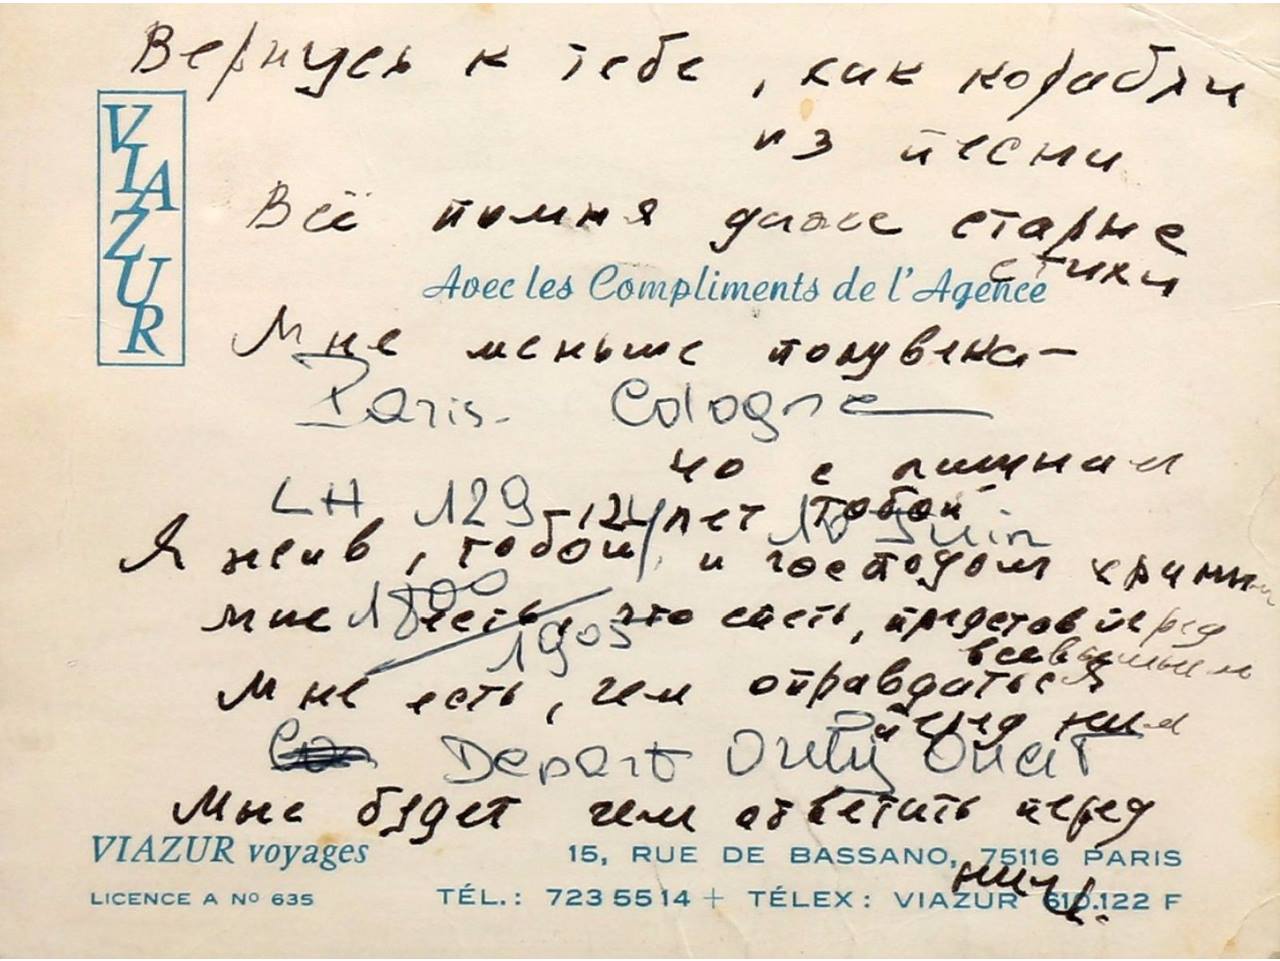 Вернусь к тебе, как корабли
из песни
VIAZUR
Всё помня даже старые
стихи
Avec les Compliments de l'Agence
Мне меньше полувека –
Paris. Cologne
но с лишним
LH 129
12 лет тобой
10 Juin
Я жив, тобой и господом храним
1800
мне есть, что спеть, представ перед
всевышним
1905
Мне есть, чем оправдаться
перед ним
Depart Orly Ouest
Мне будет чем ответить перед
ним.
VIAZUR voyages
15, RUE DE BASSANO, 75116 PARIS
LICENCE A No 635
TÉL.: 723 55 14 + TÉLEX: VIAZUR 610.122 F